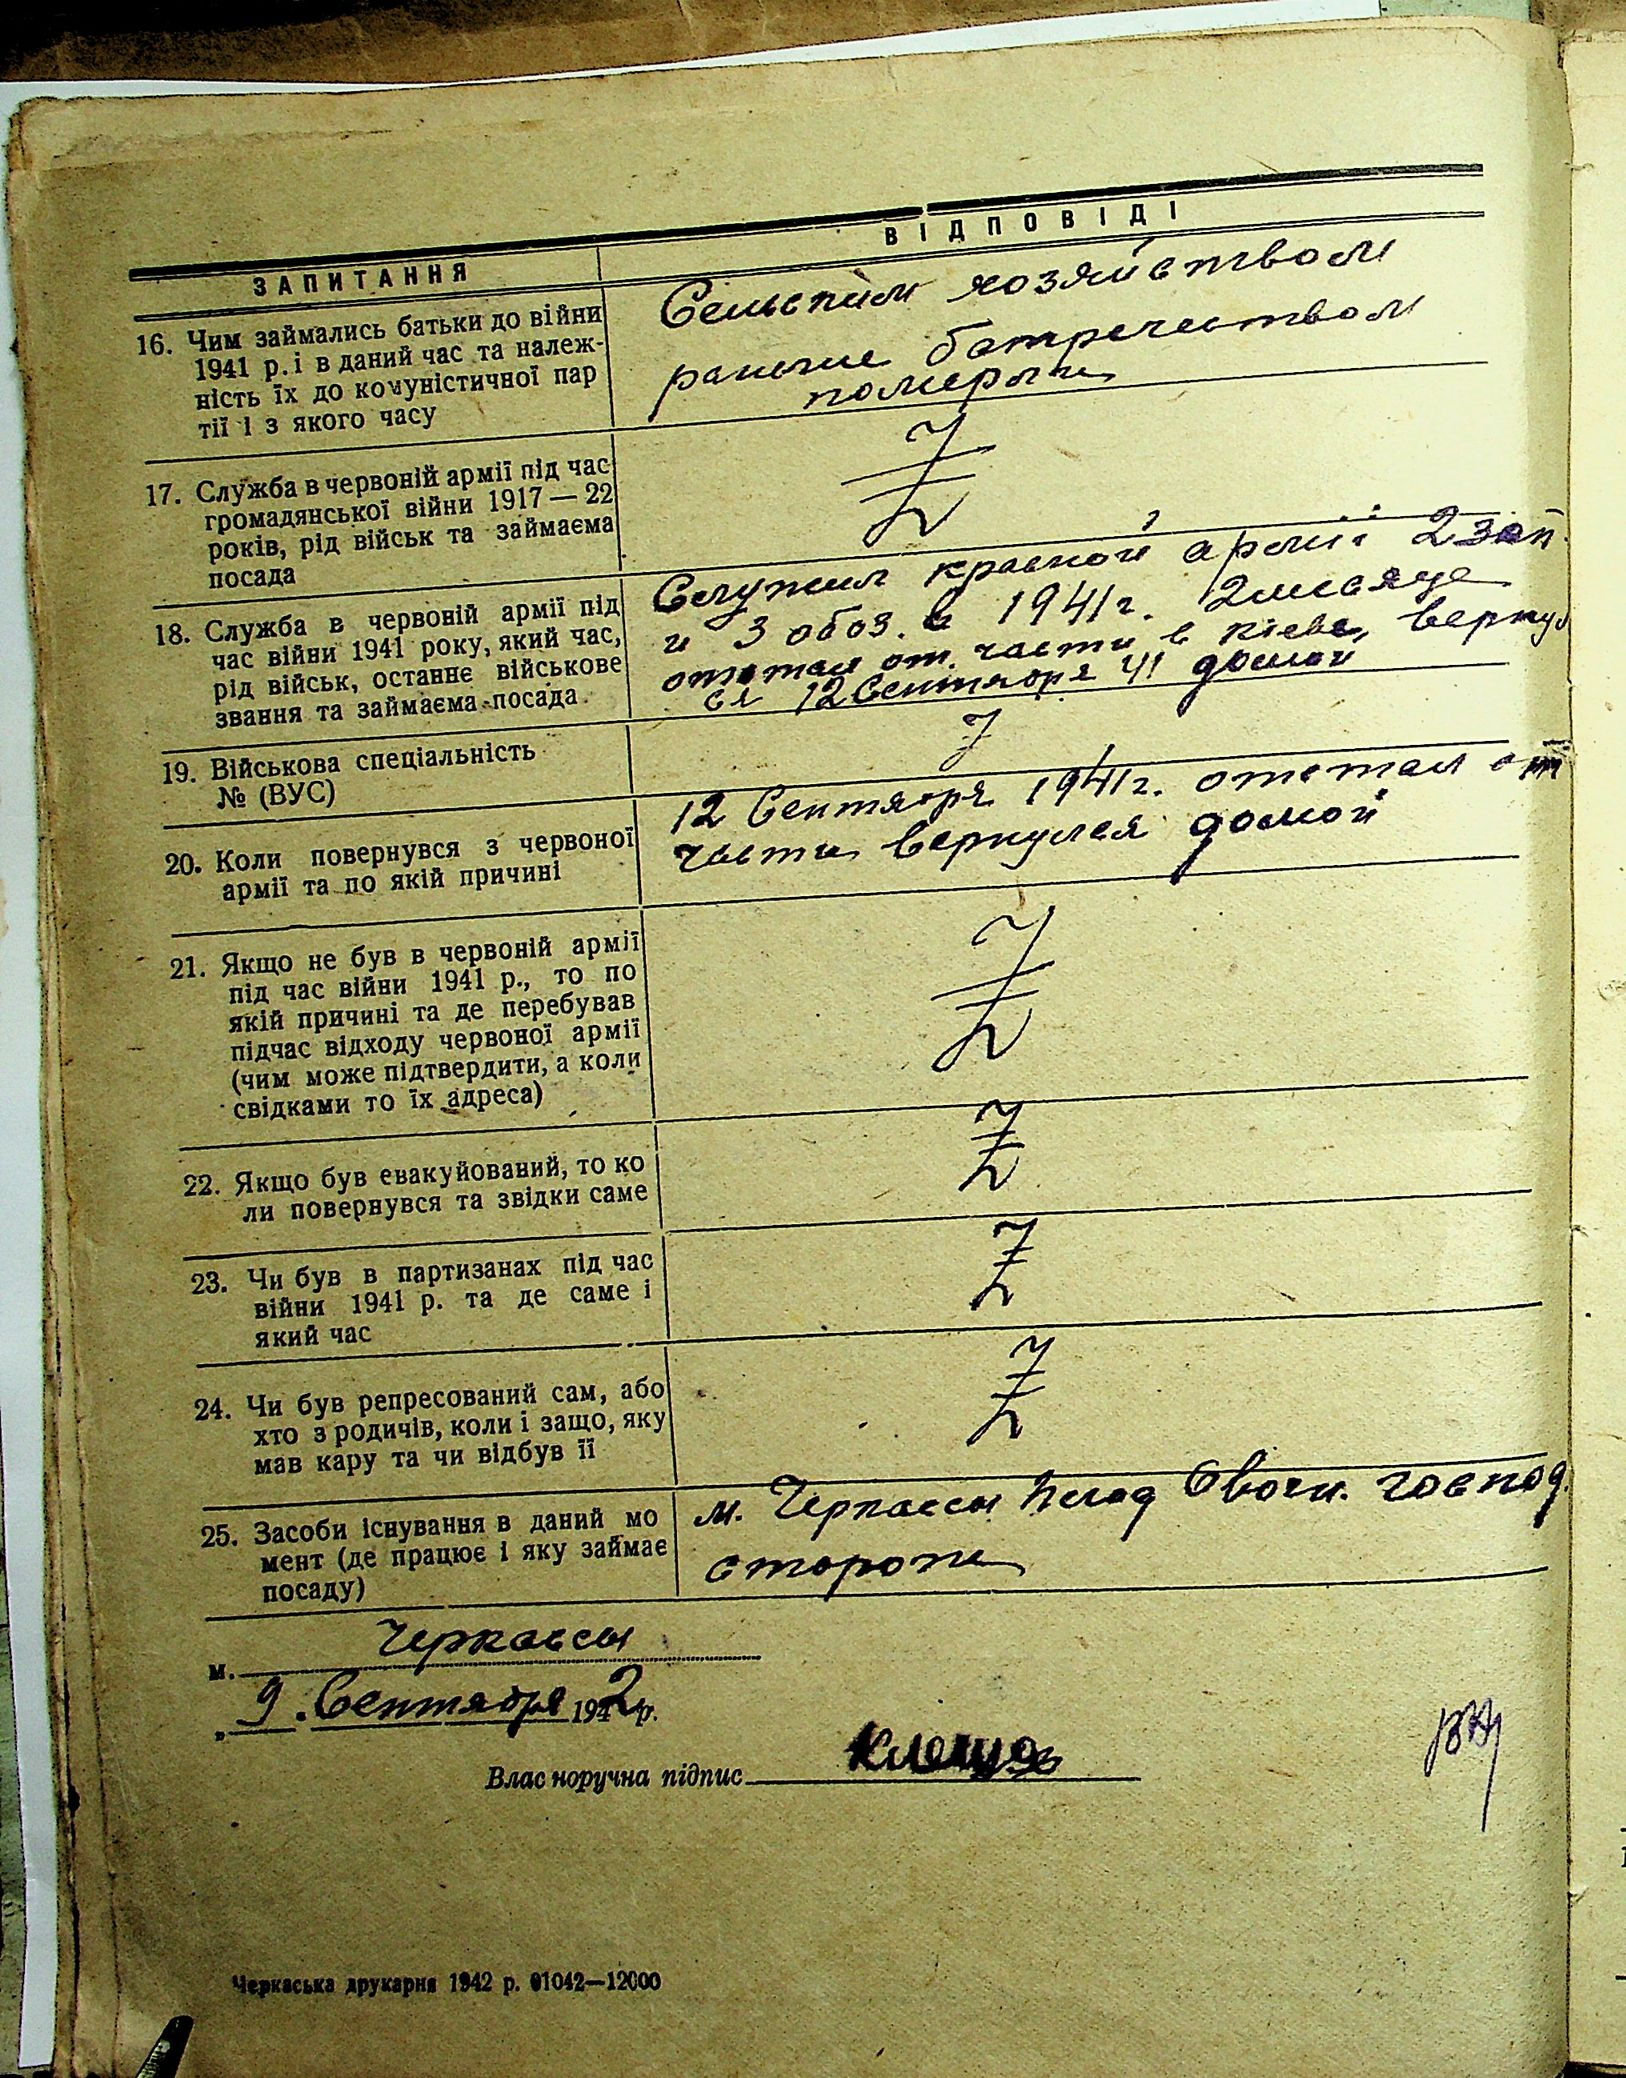 ЗАПИТАННЯ
ВІДПОВІДІ
16. Чим займались батьки до війни
1941 р. і в даний час та належ-
ність їх до комуністичної пар
тії і з якого часу
Сельским хозяйством
раньше батречеством
померли
17. Служба в червоній армії під час
громадянської війни 1917 — 22
років, рід військ та займаєма
посада
18. Служба в червоній армії під
час війни 1941 року, який час,
рід військ, останнє військове
звання та займаєма посада
Служил красной армії 2 зап.
и 3 обоз. в 1941 г. 2 месяца
отстал от части в Києве, верну
ся 12 Сентября 41 домой
19. Військова спеціальність
№ (ВУС)
20. Коли повернувся з червоної
армії та по якій причині
12 Сентября 1941 г. отстал от
части вернулся домой
21. Якщо не був в червоній армії
під час війни 1941 р., то по
якій причині та де перебував
підчас відходу червоної армії
(чим може підтвердити, а коли
свідками то їх адреса)
22. Якщо був евакуйований, то ко
ли повернувся та звідки саме
23. Чи був в партизанах під час
війни 1941 р. та де саме і
який час
24. Чи був репресований сам, або
хто з родичів, коли і защо, яку
мав кару та чи відбув її
25. Засоби існування в даний мо
мент (де працює і яку займає
посаду)
м. Черкассы Овочн. господ.
сторож
м. Черкассы
„ 9 . Сентября 1942 р.
Власноручна підпис
Черкаська друкарня 1942 р. 01042—12000